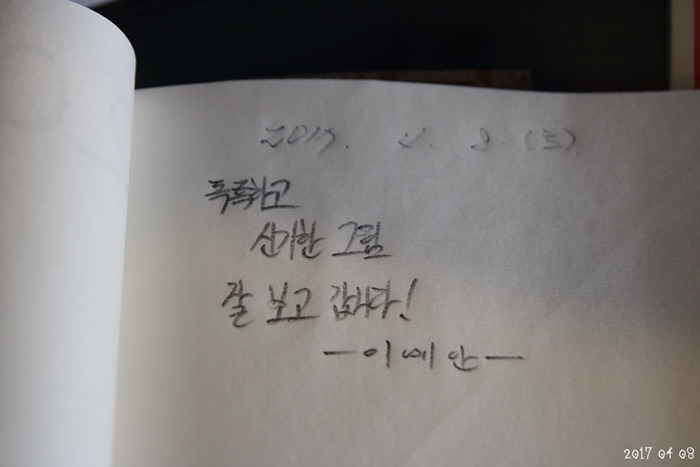 2017. 4. 8. (토).
독특하고
신기한 그림
잘 보고 갑니다!
-이예안-
2017 04 08